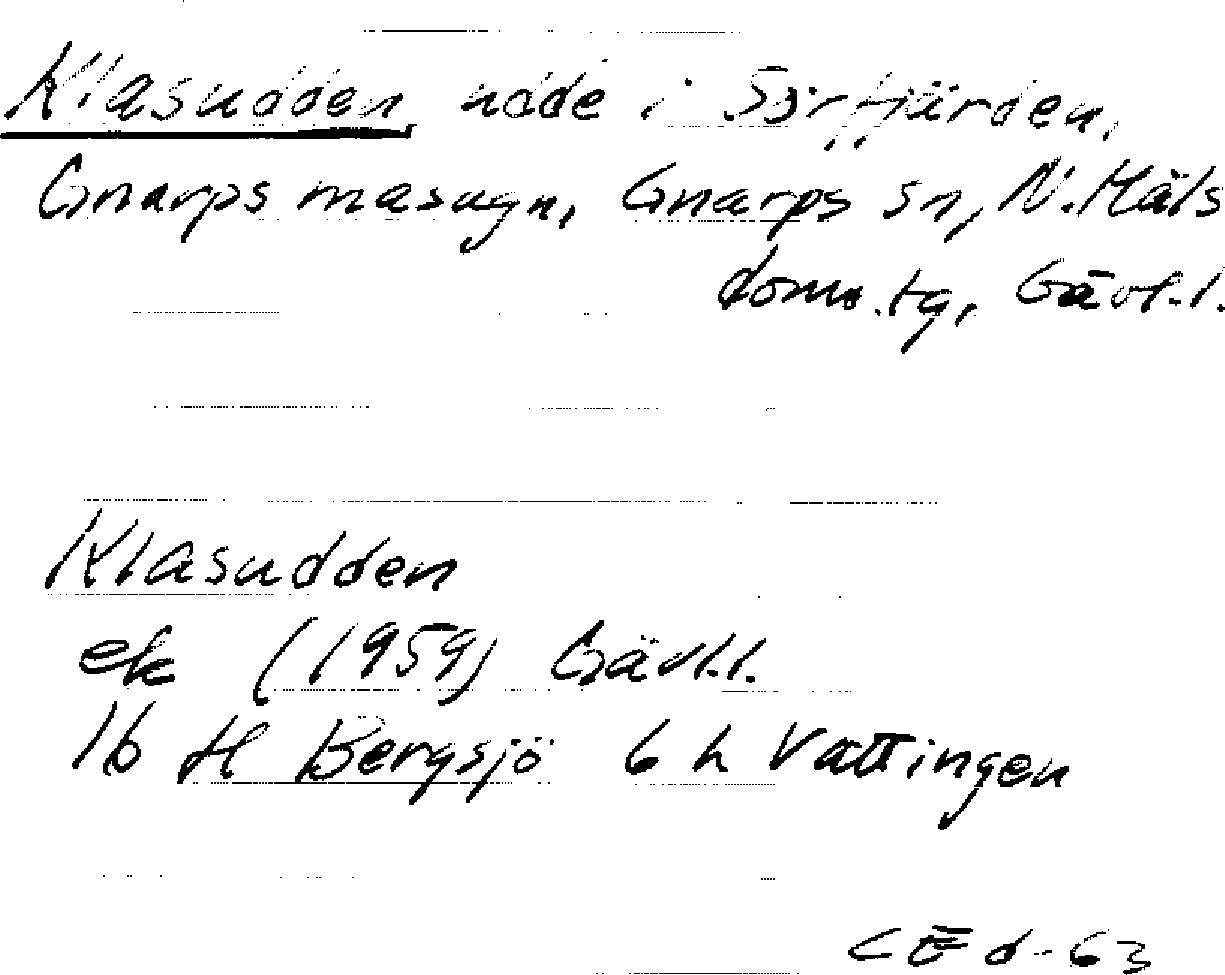 Klasudden, udde i Sörfjärden,
Gnarps masugn, Gnarps sn, N. Häls
doms.tg, Gävl.l.
Klasudden
ek (1959) Gävl.l.
16 H Bergsjö 6 h Vattingen
CEd-63